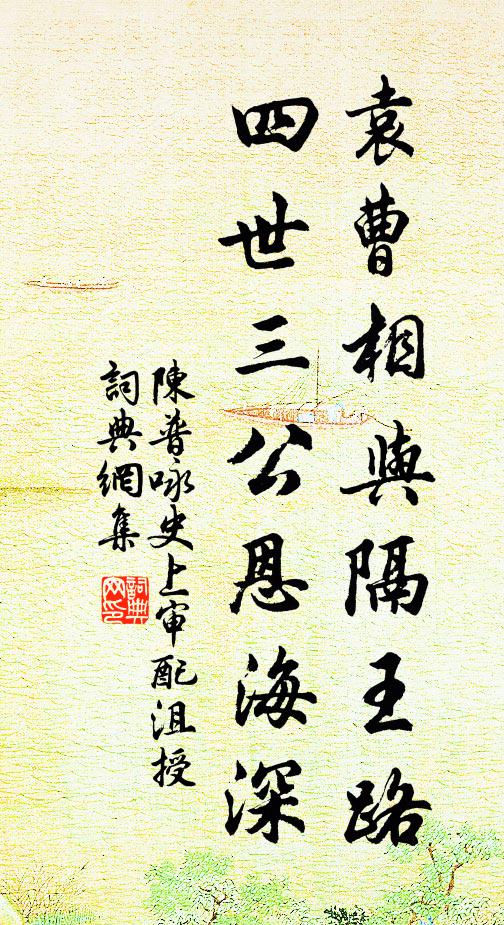 袁曹相與隔王路
四世三公恩海深
陳普咏史上审配沮授
詞典網集
詞典
网印